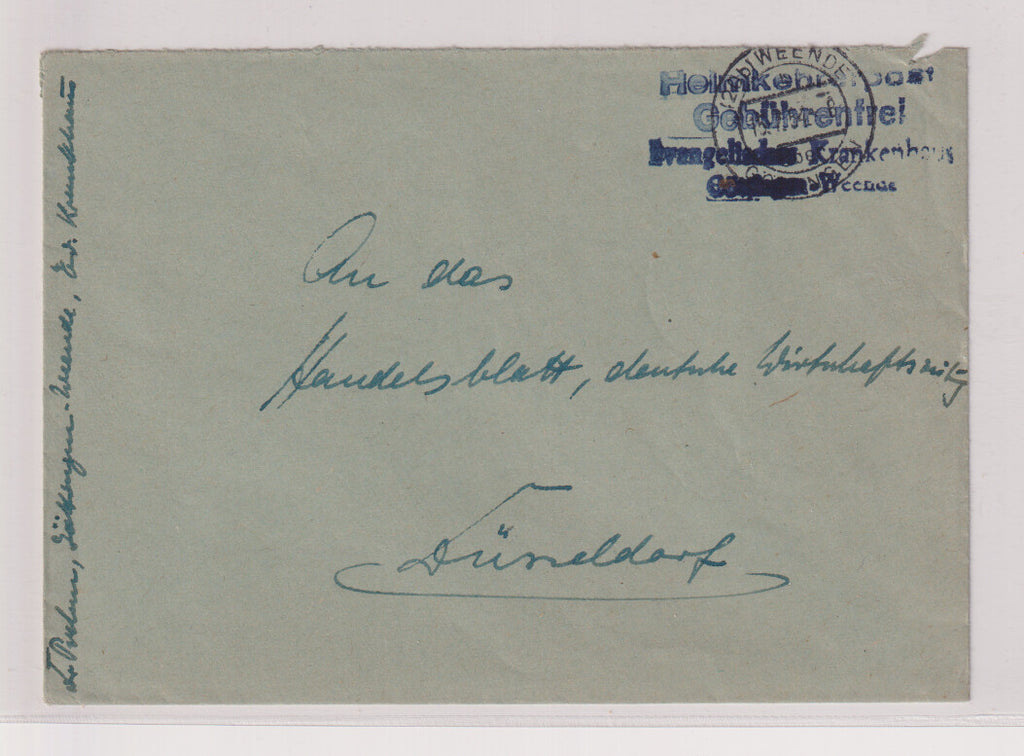 (20b) WEENDE
Heimkehrerpost
Gebührenfrei
Evangelisches Krankenhaus
Göttingen-Weende
An das
Handelsblatt, deutsche Wirtschaftsztg
Düsseldorf
Göttingen-Weende, Ev. Krankenhaus